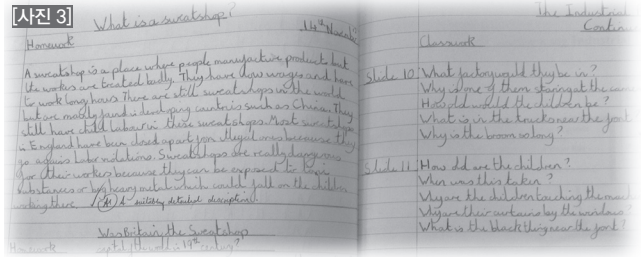 [사진 3]
What is a sweatshop?
14th March
Homework
A sweatshop is a place where people manufacture products but
the workers are treated badly. They have low wages and have
to work long hours. There are still sweatshops in the world
but are mostly found in developing countries such as China. They
still have child labour in these sweatshops. Most sweatshops
in England have been closed apart from illegal ones because they
go against labor violations. Sweatshops are really dangerous
for their workers because they can be exposed to toxic
substances or big heavy metal which could fall on the children
working there.
A suitably detailed description.
Was Britain the Sweatshop
Homework
capital of the world in 19th century?
The Industrial
Classwork
Slide 10: What factory would they be in?
Why is one of them staring at the
How old would the children be?
What is in the trucks near the front
Why is the broom so long?
Slide 11: How old are the children?
When was this taken?
Why are the children touching the
Why are their curtains by the windows?
What is the black thing near the front?